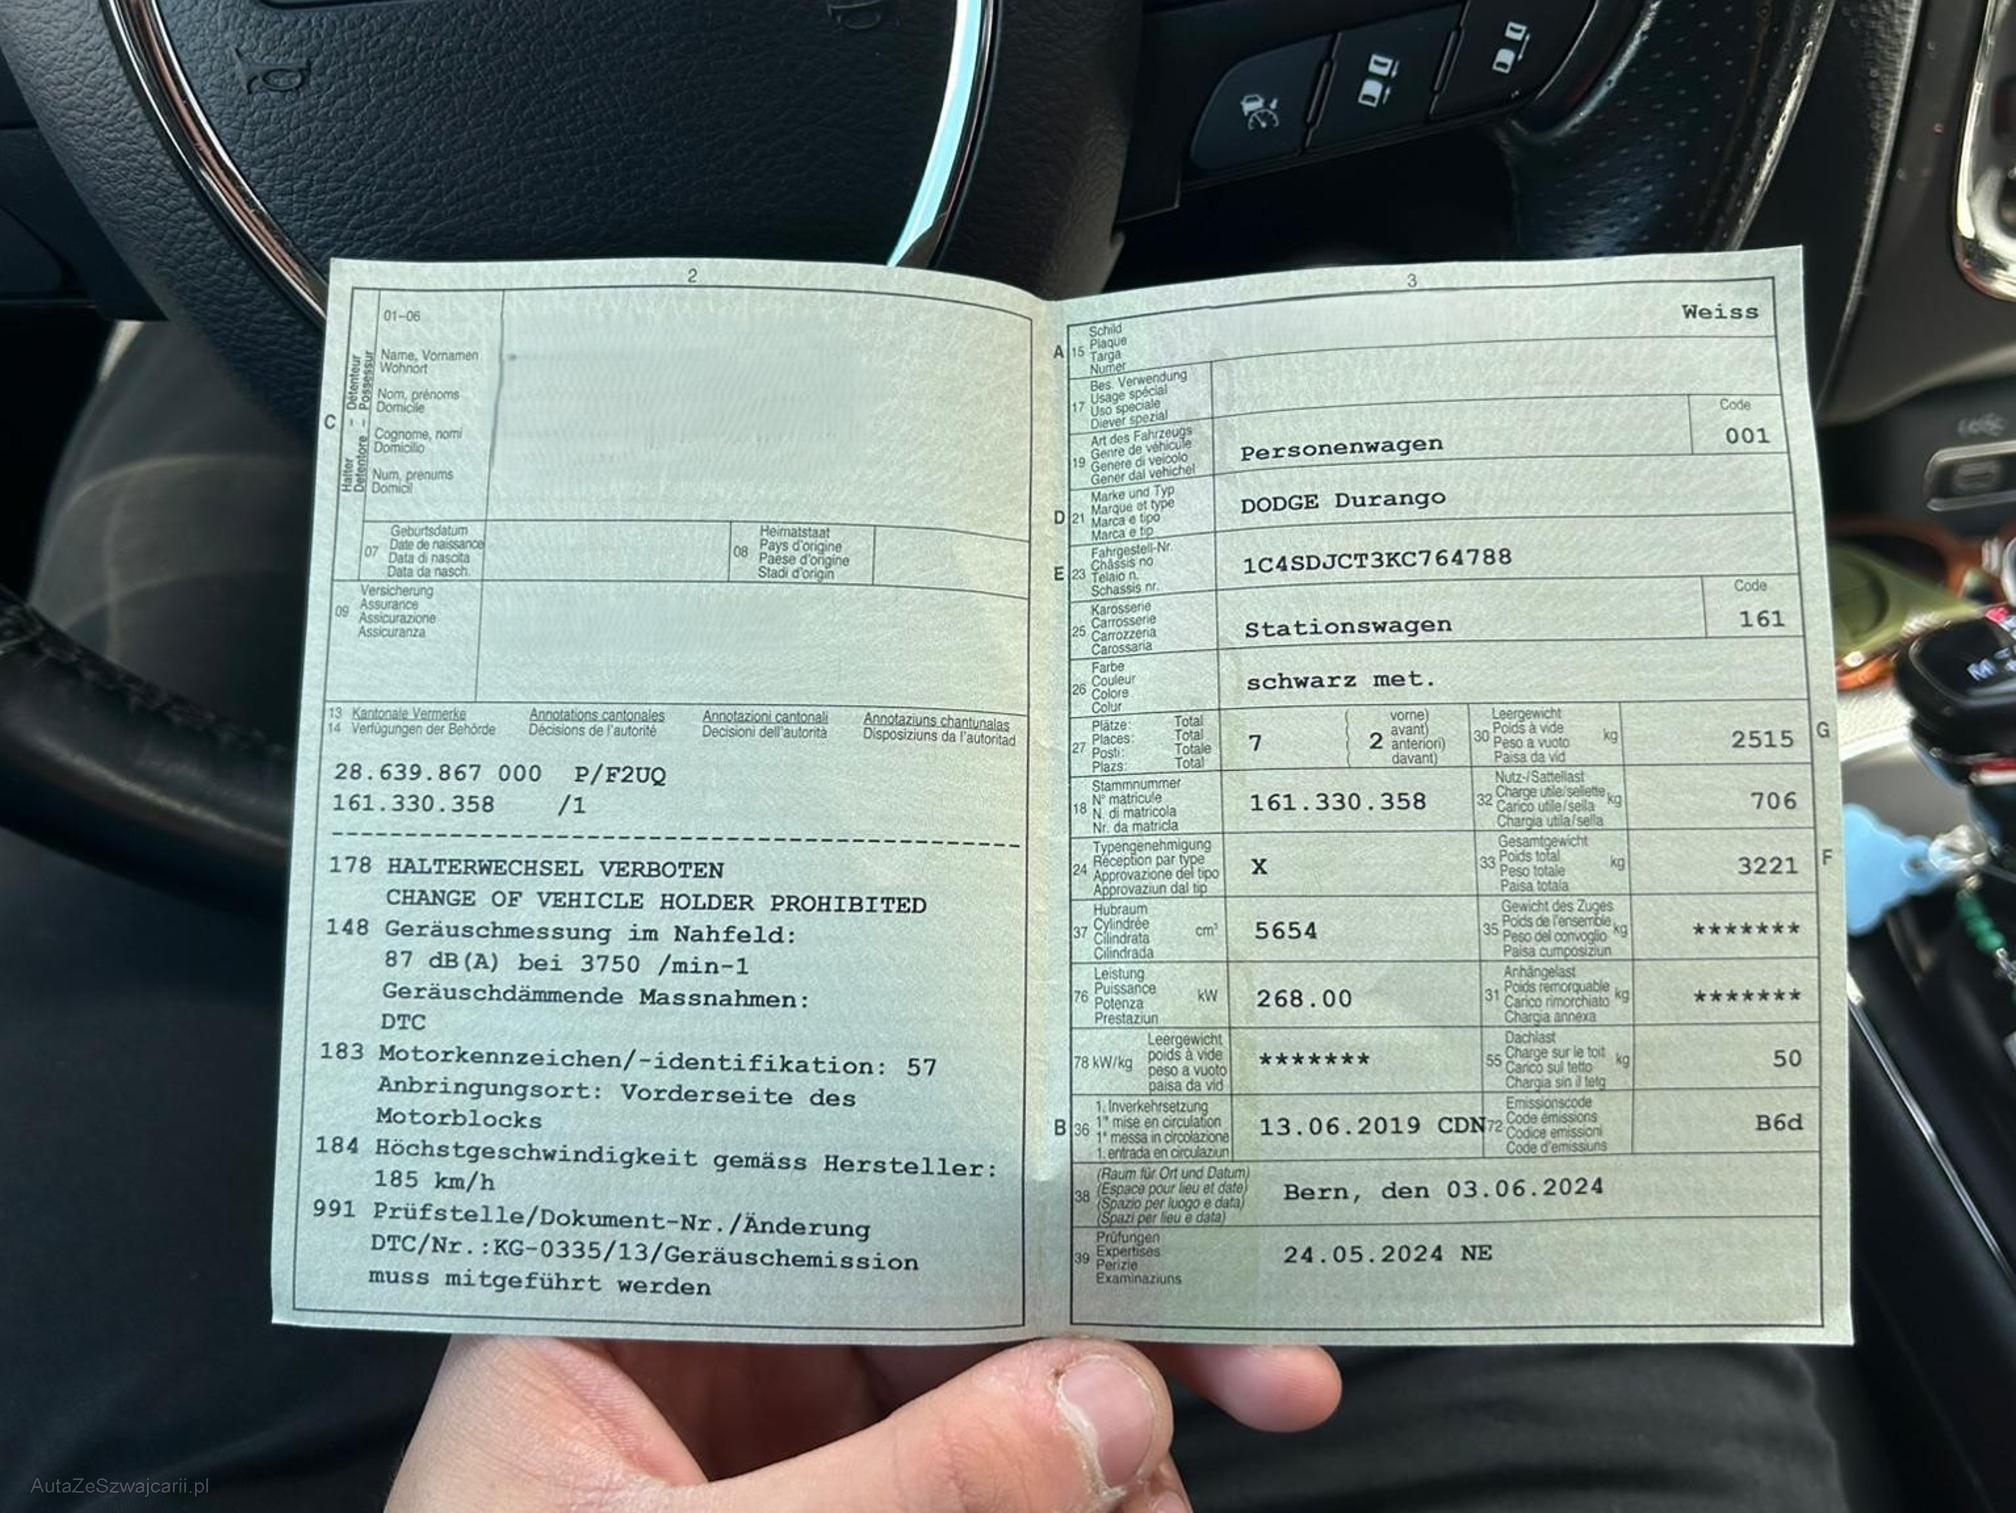 2
01-06
C
Halter – Détenteur
Detentore – Possessur
Name, Vornamen
Wohnort
Nom, prénoms
Domicile
Cognome, nomi
Domicilio
Num, prenums
Domicil
07
Geburtsdatum
Date de naissance
Data di nascita
Data da nasch.
08
Heimatstaat
Pays d'origine
Paese d'origine
Stadi d'origin
09
Versicherung
Assurance
Assicurazione
Assicuranza
13 Kantonale Vermerke Annotations cantonales Annotazioni cantonali Annotaziuns chantunalas
14 Verfügungen der Behörde Décisions de l'autorité Decisioni dell'autorità Disposiziuns da l'autoritad
28.639.867 000 P/F2UQ
161.330.358 /1
178 HALTERWECHSEL VERBOTEN
CHANGE OF VEHICLE HOLDER PROHIBITED
148 Geräuschmessung im Nahfeld:
87 dB(A) bei 3750 /min-1
Geräuschdämmende Massnahmen:
DTC
183 Motorkennzeichen/-identifikation: 57
Anbringungsort: Vorderseite des
Motorblocks
184 Höchstgeschwindigkeit gemäss Hersteller:
185 km/h
991 Prüfstelle/Dokument-Nr./Änderung
DTC/Nr.:KG-0335/13/Geräuschemission
muss mitgeführt werden
3
A 15
Schild
Plaque
Targa
Numer
Weiss
17
Bes. Verwendung
Usage spécial
Uso speciale
Diever spezial
19
Art des Fahrzeugs
Genre de véhicule
Genere di veicolo
Gener dal vehichel
Personenwagen
Code
001
D 21
Marke und Typ
Marque et type
Marca e tipo
Marca e tip
DODGE Durango
E 23
Fahrgestell-Nr.
Châssis no
Telaio n.
Schassis nr.
1C4SDJCT3KC764788
25
Karosserie
Carrosserie
Carrozzeria
Carossaria
Stationswagen
Code
161
26
Farbe
Couleur
Colore
Colur
schwarz met.
27
Plätze: Total
Places: Total
Posti: Totale
Plazs: Total
7
2
vorne)
avant)
anteriori)
davant)
30
Leergewicht
Poids à vide
Peso a vuoto
Paisa da vid
kg
2515
G
18
Stammnummer
N° matricule
N. di matricola
Nr. da matricla
161.330.358
32
Nutz-/Sattellast
Charge utile/sellette
Carico utile/sella
Chargia utila/sella
kg
706
24
Typengenehmigung
Réception par type
Approvazione del tipo
Approvaziun dal tip
X
33
Gesamtgewicht
Poids total
Peso totale
Paisa totala
kg
3221
F
37
Hubraum
Cylindrée
Cilindrata
Cilindrada
cm³
5654
35
Gewicht des Zuges
Poids de l'ensemble
Peso del convoglio
Paisa cumposiziun
kg
*******
76
Leistung
Puissance
Potenza
Prestaziun
kW
268.00
31
Anhängelast
Poids remorquable
Carico rimorchiato
Chargia annexa
kg
*******
78 kW/kg
Leergewicht
poids à vide
peso a vuoto
paisa da vid
*******
55
Dachlast
Charge sur le toit
Carico sul tetto
Chargia sin il tetg
kg
50
B 36
1. Inverkehrsetzung
1re mise en circulation
1a messa in circolazione
1. entrada en circulaziun
13.06.2019 CDN
72
Emissionscode
Code émissions
Codice emissioni
Code d'emissiuns
B6d
38
(Raum für Ort und Datum)
(Espace pour lieu et date)
(Spazio per luogo e data)
(Spazi per lieu e data)
Bern, den 03.06.2024
39
Prüfungen
Expertises
Perizie
Examinaziuns
24.05.2024 NE
AutaZeSzwajcarii.pl